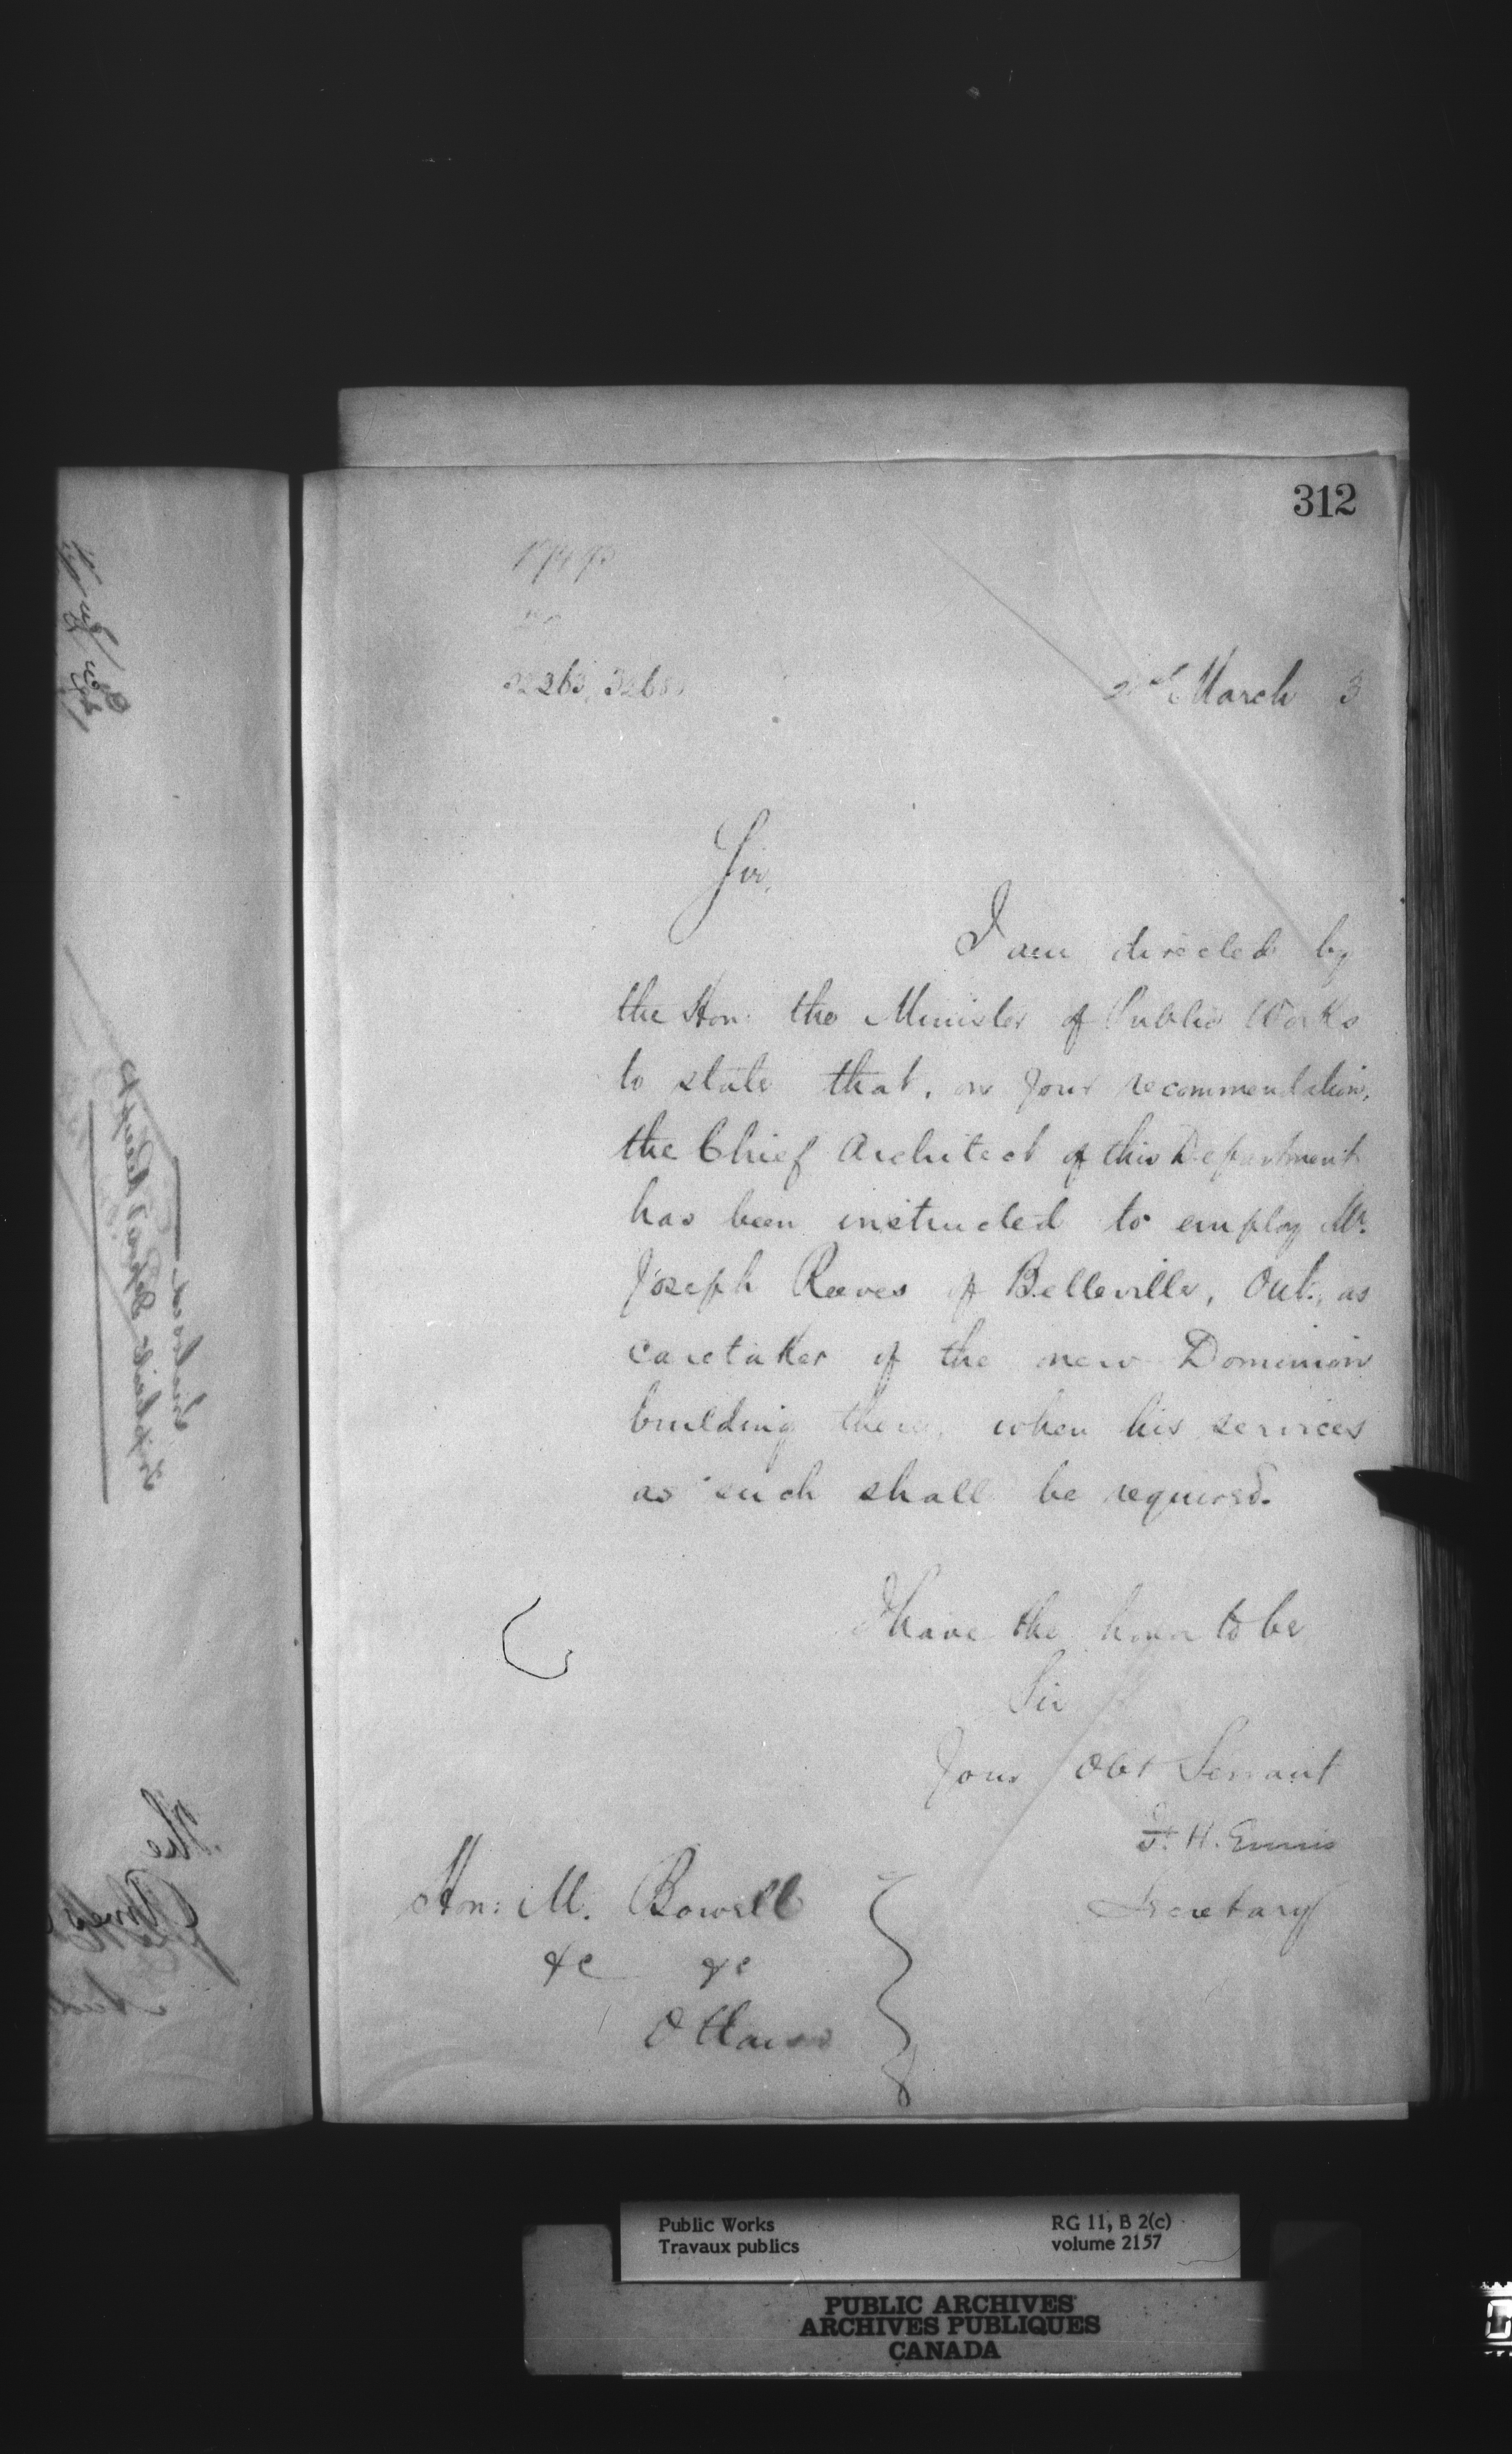 312
March 3
Sir,
I am directed by
the Hon: the Minister of Public Works
to state that, on your recommendation,
the Chief Architect of this Department
has been instructed to employ Mr.
Joseph Reeves of Belleville, Ont., as
caretaker of the new Dominion
building there, when his services
as such shall be required.
I have the honor to be
Sir
Your Obt Servant
F. H. Ennis
Secretary
Hon: M. Bowell
&c &c
Ottawa
Public Works
Travaux publics
RG 11, B 2(c)
volume 2157
PUBLIC ARCHIVES
ARCHIVES PUBLIQUES
CANADA